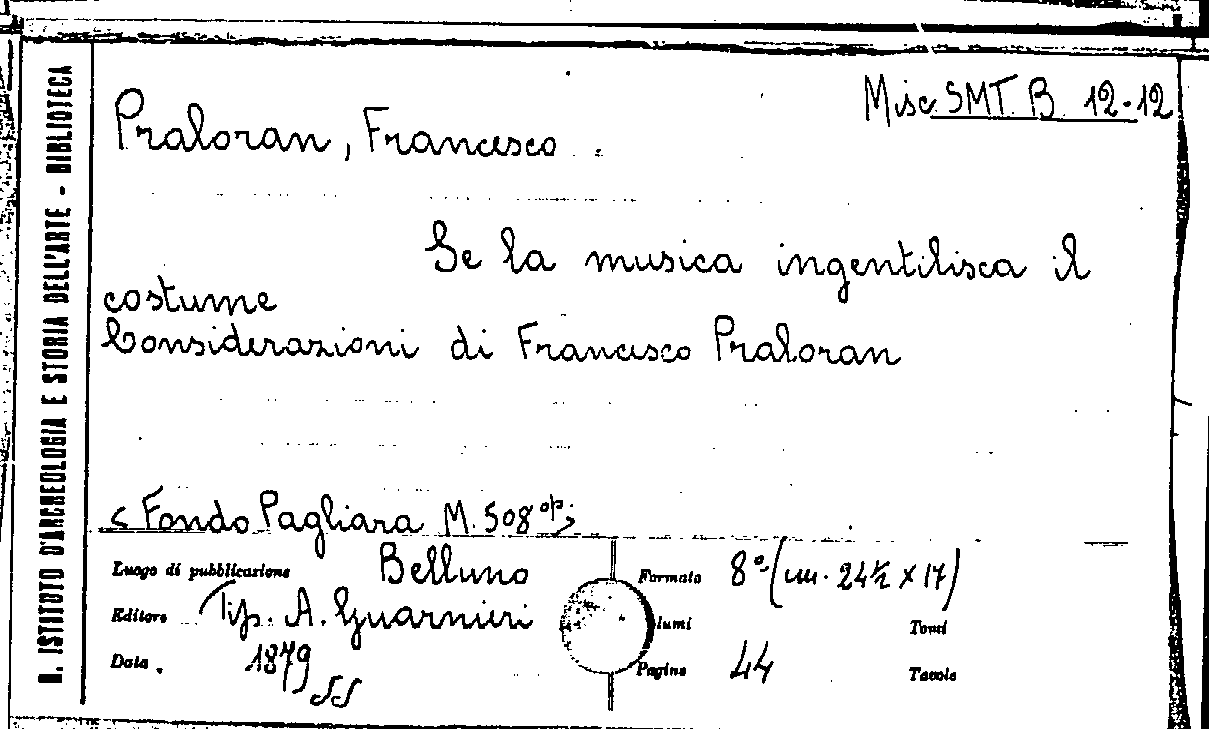 R. ISTITUTO D'ARCHEOLOGIA E STORIA DELL'ARTE - BIBLIOTECA
Misc SMT. B 12-12
Praloran, Francesco
Se la musica ingentilisca il
costume
Considerazioni di Francesco Praloran
<Fondo Pagliara M. 508 op>
Luogo di pubblicazione Belluno Formato 8° (cm. 24½ x 17)
Editore Tip. A. Guarnieri lumi Tomi
Data 1879 Pagine 44 Tavole